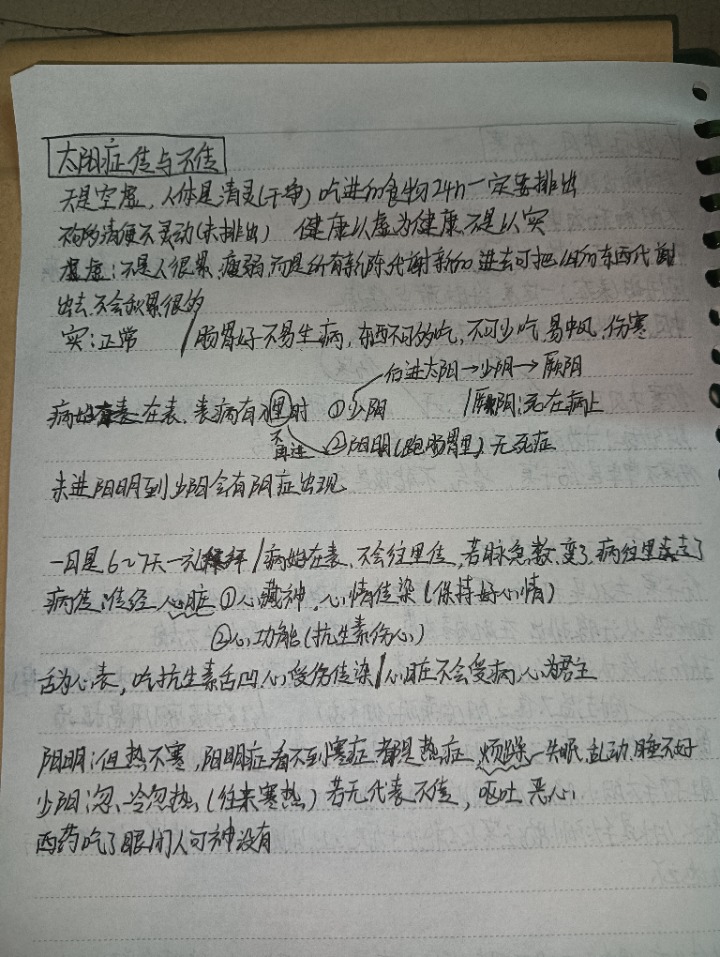 太阳症传与不传
天是空虚,人体是清灵(干净)吃进的食物24h一定要排出
不够清便不灵动(未排出) 健康以虚为健康,不是以实
虚:不是人很累、瘦弱,而是所有新陈代谢新的进去可把旧的东西代谢
出去,不会积累很多
实:正常 / 肠胃好不易生病,东西不可多吃,不可少吃易中风、伤寒
后进太阴→少阴→厥阴
病 在表、表病有里时 ①少阳 /厥阴:死在病上
再进 ②阳明(跑肠胃里)无死症
未进阳明到少阳会有阴症出现
一日是6~7天一元 / 病始在表,不会往里传,若脉急数,变了,病往里走了
病传:传经 心脏 ①心藏神,心情传染(保持好心情)
②心功能(抗生素伤心)
舌为心表,吃抗生素舌凹,心受伤传染/心脏不会受病,心为君主
阳明:但热不寒,阳明症看不到寒症,都是热症 烦躁—失眠,乱动,睡不好
少阳:忽冷忽热,(往来寒热)若无代表不传,呕吐、恶心,
西药吃了眼闭人可神没有